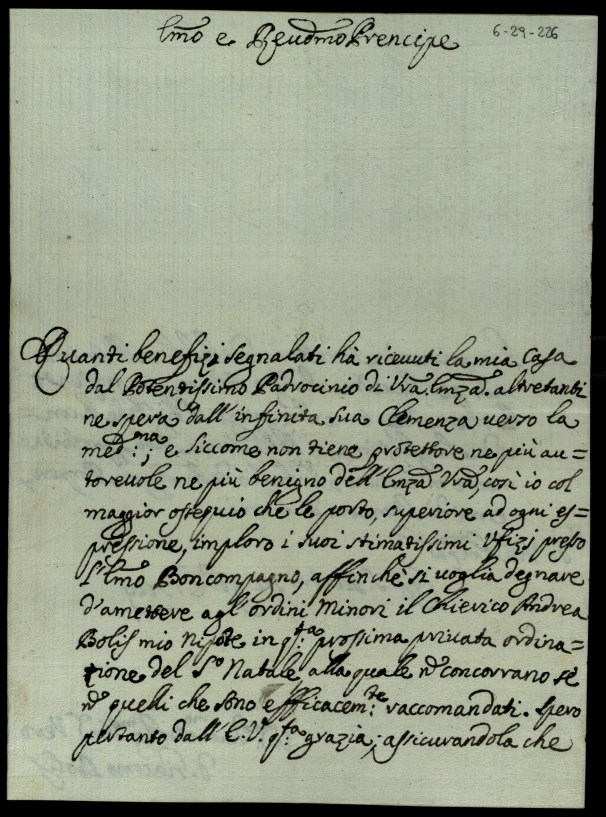 6-29-226
Emo e Reudmo Prencipe
Quanti benefizi segnalati hà riceuuti la mia Casa
dal Potentissimo Padrocinio di Vra. Emza. altretanti
ne spera dall'infinita sua Clemenza uerzo la
med:ma; e siccome non tiene protettore ne più au=
toreuole ne più benigno dell'Emza Vra, così io col
maggior ossequio che le porto, superiore ad ogni es=
pressione, imploro i suoi stimatissimi Vfizi presso
l'Emo Boncompagno, affinche si uoglia degnare
d'amettere agl'ordini Minori il Chierico Andrea
Bolis mio nipote in q:ta prossima priuata ordina=
tione del So Natale, alla quale nō concorrano se
nō quelli che sono efficacem:te raccomandati. Spero
pertanto dall'E.V. q:ta grazia; assicurandola che